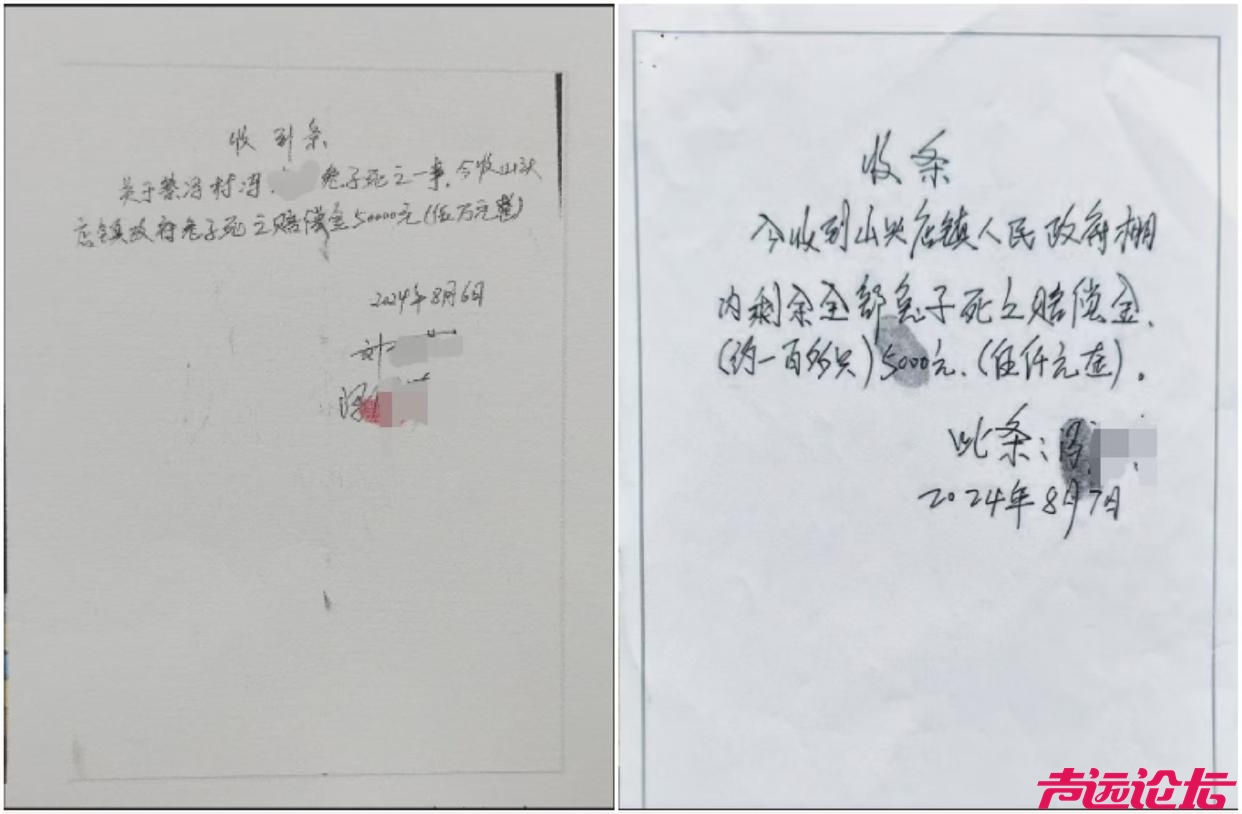 收到条
关于蔡冯村冯
兔子死之一事,今收山头
店镇政府兔子死之赔偿金50000元(伍万元整)
2024年8月6日
刘
收条
今收到山头店镇人民政府棚
内剩余全部兔子死之赔偿金、
(约一百多只)5000元、(伍仟元整)。
此条:冯
2024年8月7日
声远论坛